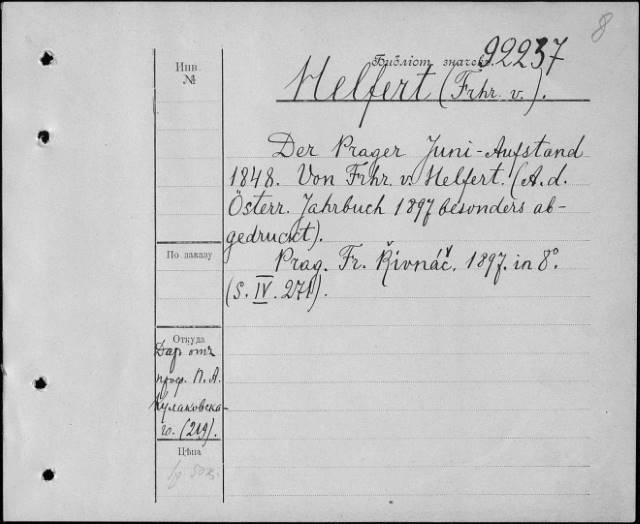 8
Библіот. значекъ 92237
Инв.
№
Helfert (Frhr. v.).
Der Prager Juni-Aufstand
1848. Von Frhr. v. Helfert. (A. d.
Österr. Jahrbuch 1897 besonders ab-
gedruckt).
Prag. Fr. Řivnáč. 1897. in 8º.
(S. IV. 271).
По заказу
Откуда
Даръ отъ
проф. П. А.
Кулаковска-
го. (219).
Цѣна